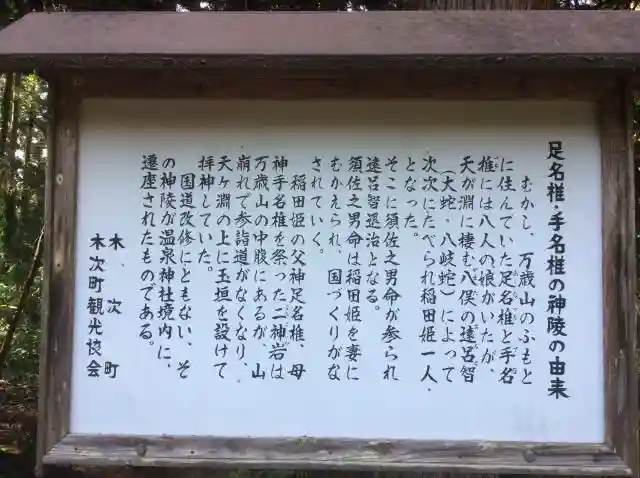 足名椎・手名椎の神陵の由来
むかし、万歳山のふもと
に住んていた足名椎と手名
椎には八人の娘がいたが、
天が淵に棲む八俣の遠呂智
(大蛇・八岐蛇)によって
次次にたべられ稲田姫一人
となった。
そこに須佐之男命が参られ
遠呂智退治となる。
須佐之男命は稲田姫を妻に
むかえられ、国づくりがな
されていく。
稲田姫の父神足名椎、母
神手名椎を祭った二神岩は
万歳山の中腹にあるが、山
崩れで参詣道がなくなり、
天ヶ淵の上に玉垣を設けて
拝神していた。
国道改修にともない、そ
の神陵が温泉神社境内に、
遷座されたものである。
木次町
木次町観光協会